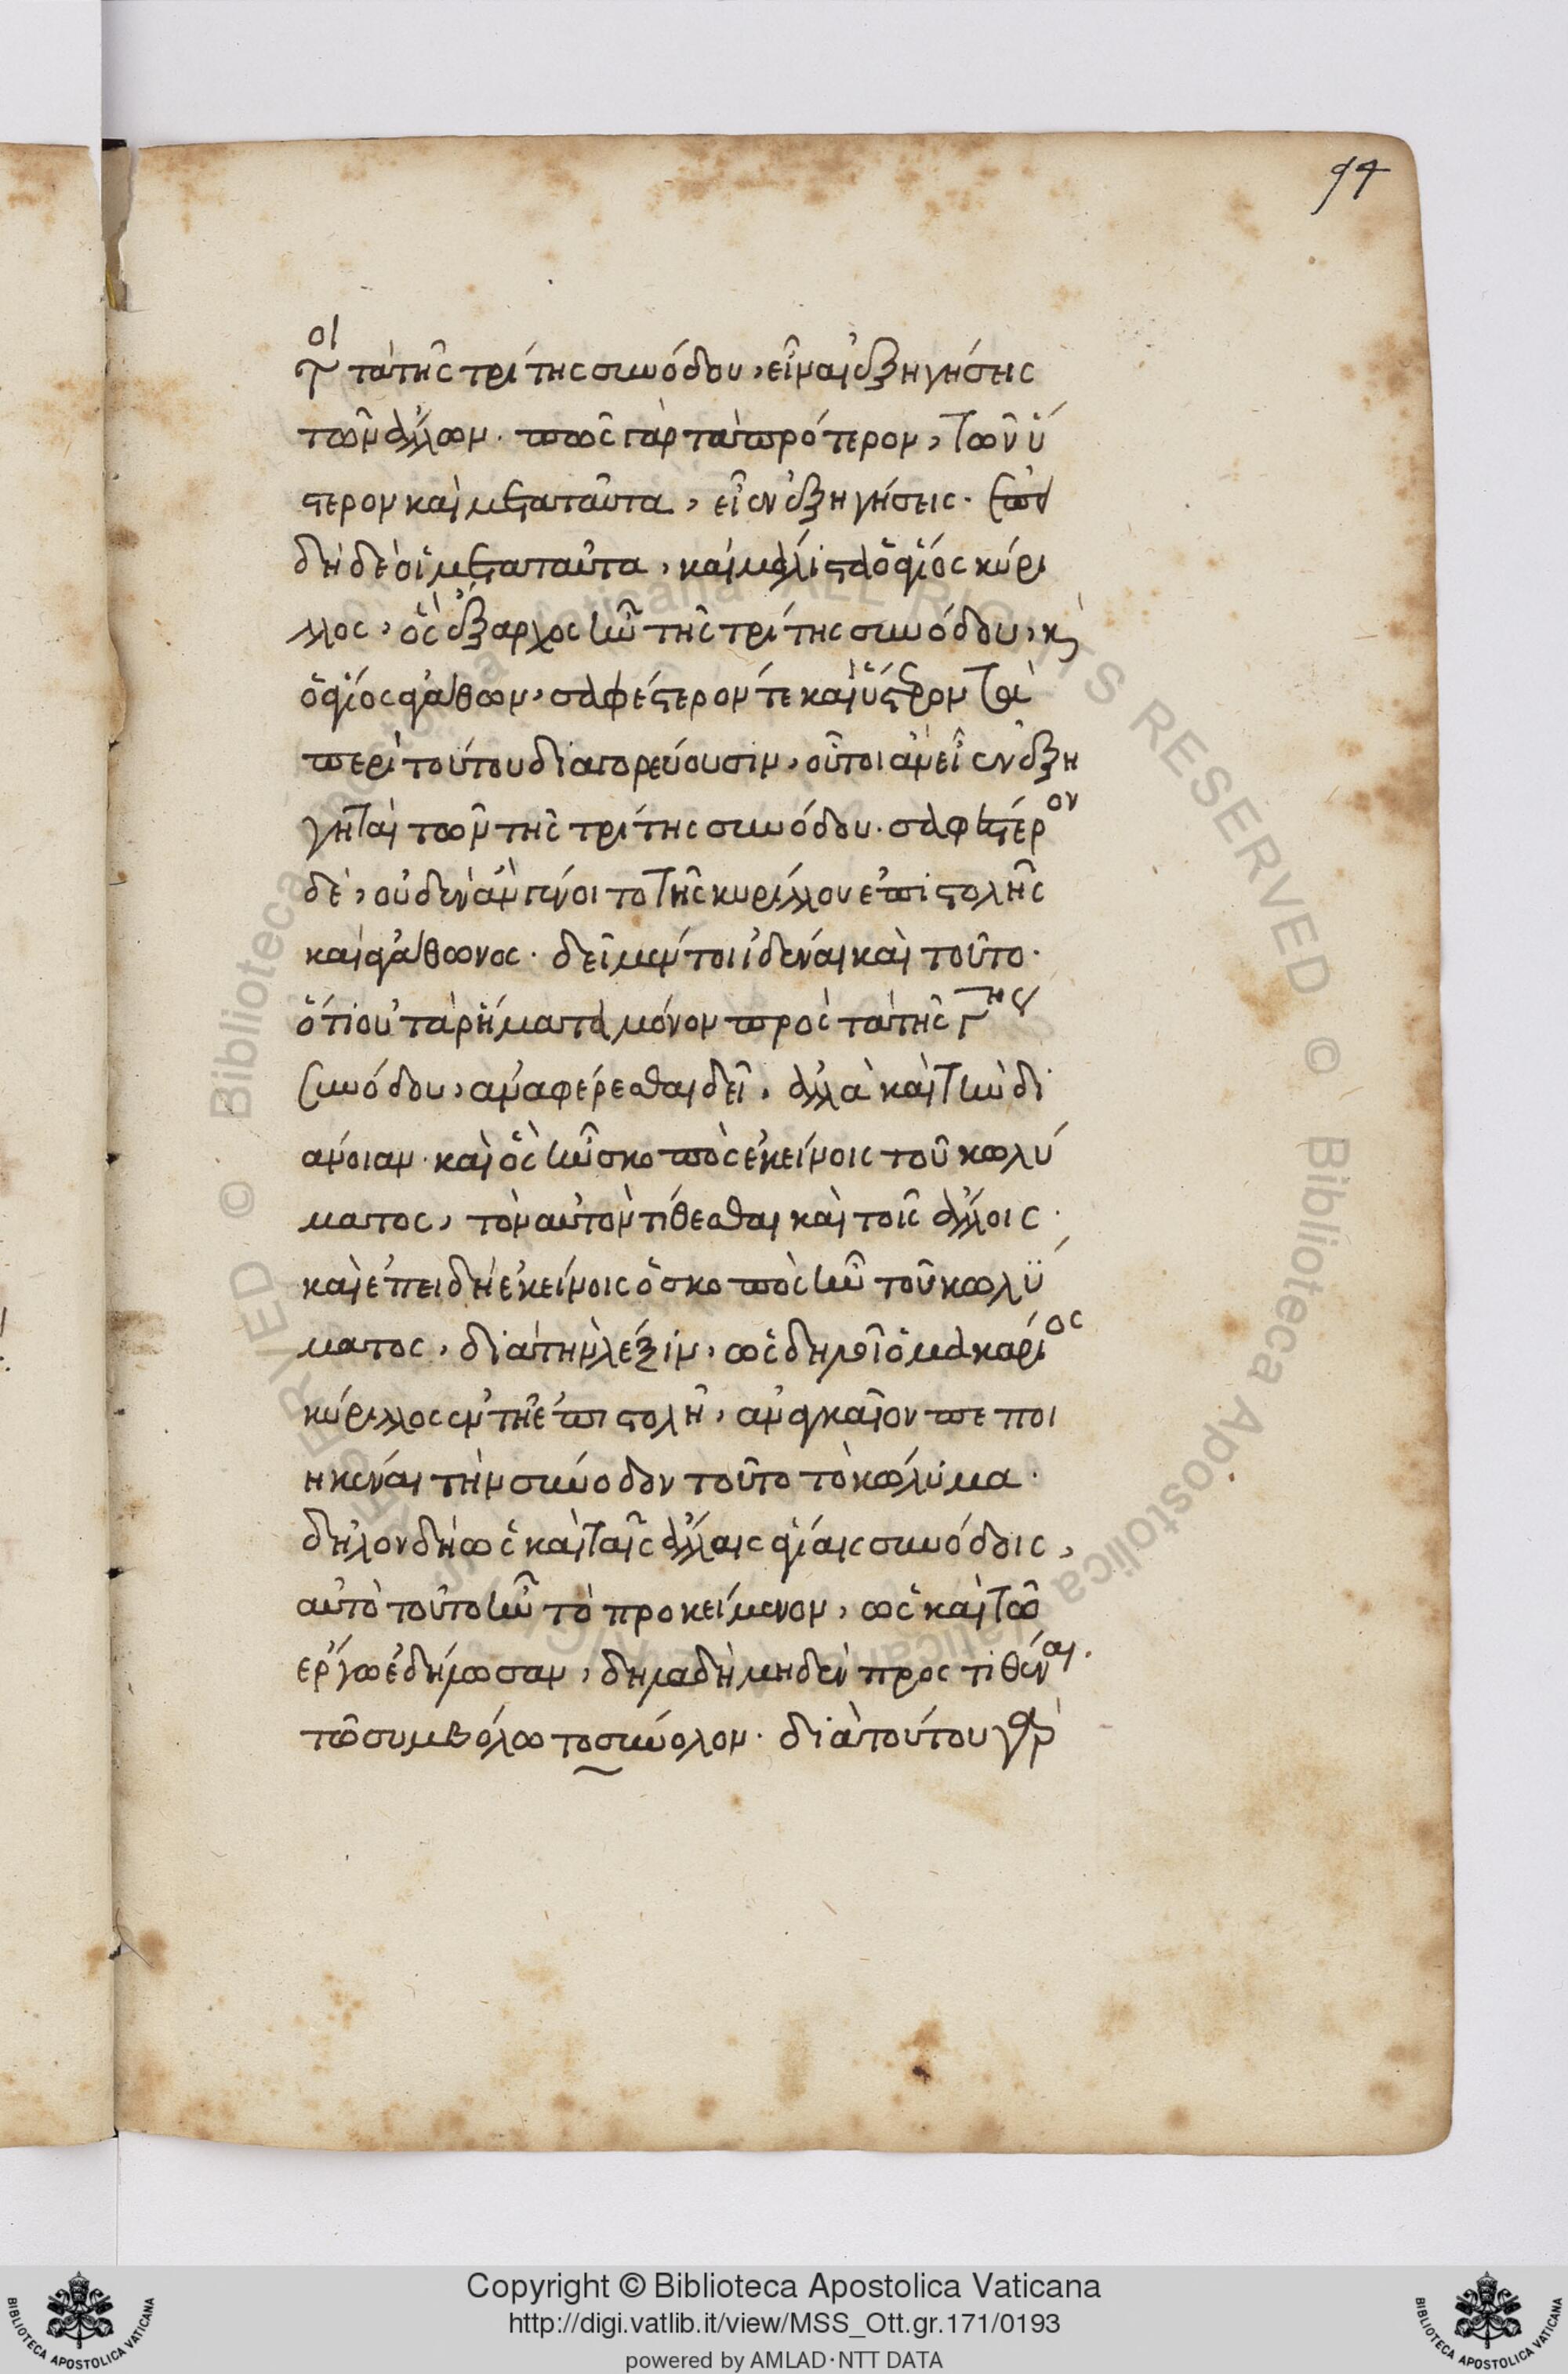 94
τοι τὰ τῆς τρίτης συνόδου, εἶναι ἐξηγήσεις
τῶν ἄλλων. πῶς γὰρ τὰ πρότερον, τῶν ὕ
στερον καὶ μετὰ ταῦτα, εἶεν ἐξηγήσεις. ἐπεὶ
δὴ δὲ οἱ μετὰ ταῦτα, καὶ μάλιστα ὁ ἅγιος κύρι
λλος, ὃς ἔξαρχος ἦν τῆς τρίτης συνόδου, κ
ὁ ἅγιος ἀγάθων, σαφέστερόν τε καὶ ὕστερον τὰ
περὶ τούτου διαγορεύουσιν, οὗτοι ἂν εἶεν ἐξη
γηταὶ τῶν τῆς τρίτης συνόδου. σαφέστερον
δὲ, οὐδὲν ἂν γένοιτο τῆς κυρίλλου ἐπιστολῆς
καὶ ἀγάθωνος. δεῖ μέντοι ἰδέναι καὶ τοῦτο.
ὅτι οὐ τὰ ῥήματα μόνον πρὸς τὰ τῆς γης
συνόδου, ἀναφέρεσθαι δεῖ, ἀλλὰ καὶ τὴν δι
άνοιαν. καὶ ὃς ἦν σκοπὸς ἐκείνοις τοῦ κωλύ
ματος, τὸν αὐτὸν τίθεσθαι καὶ τοῖς ἄλλοις.
καὶ ἐπειδὴ ἐκείνοις ὁ σκοπὸς ἦν τοῦ κωλύ
ματος, διὰ τὴν λέξιν, ὡς δηλοῖ ὁ μακάριος
κύριλλος ἐν τῇ ἐπιστολῇ, ἀναγκαῖον πεποι
ηκέναι τὴν σύνοδον τοῦτο τὸ κώλυμα.
δῆλον δὴ ὡς καὶ ταῖς ἄλλαις ἁγίαις συνόδοις,
αὐτὸ τοῦτο ἦν τὸ προκείμενον, ὡς καὶ τῶ
ἔργω ἐδήλωσαν, δηλαδὴ μηδὲν προστιθέναι
τῶ συμβόλω τοσύνολον. διὰ τούτου γὰρ
Copyright © Biblioteca Apostolica Vaticana
http://digi.vatlib.it/view/MSS_Ott.gr.171/0193
powered by AMLAD·NTT DATA